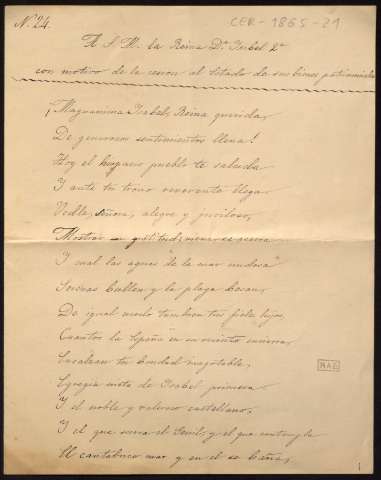 N. 24.
CER-1865-21
A S. M. la Reina Dª Isabel 2ª
con motivo de la cesion al Estado de sus bienes patrimoniales
¡Magnanima Isabel, Reina querida,
De generosos sentimientos llena!
Hoy el hispano pueblo te saluda
Y ante tu trono reverente llega.
Vedle, señora, alegre y jubiloso,
Mostrar su gratitud;
Y cual las aguas "de la mar undosa"
Serenas bullen y la playa besan,
De igual modo tambien tus fieles hijos,
Cuantos la España en su recinto encierra,
Ensalzan tu bondad inagotable,
Egregia nieta de Isabel primera.
Y el noble y valeroso castellano,
Y el que mora el Genil, y el que contempla
El cantabrico mar y en el se baña,
RAE
1